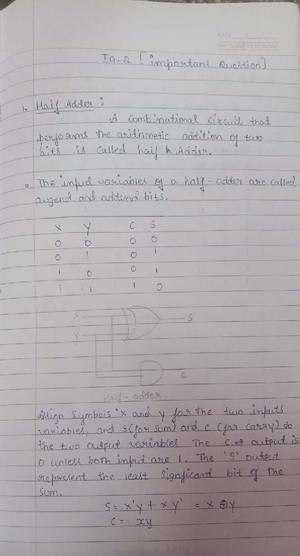 IA-2 [important Question]
1. Half Adder :
A combinational circuit that
performs the arithmetic addition of two
bits is called half Adder.
The input variables of a half-adder are called
augend and addend bits.
X Y C S
0 0 0 0
0 1 0 1
1 0 0 1
1 1 1 0
X
Y
S
C
Half-adder
Align Symbols 'x and y for the two inputs
variables, and s(for sum) and c (for carry) to
the two output variables The C output is
0 unless both input are 1. The 'S' output
represent the least Significant bit of the
sum.
S = x'y + xy' = x ⊕ y
C = xy